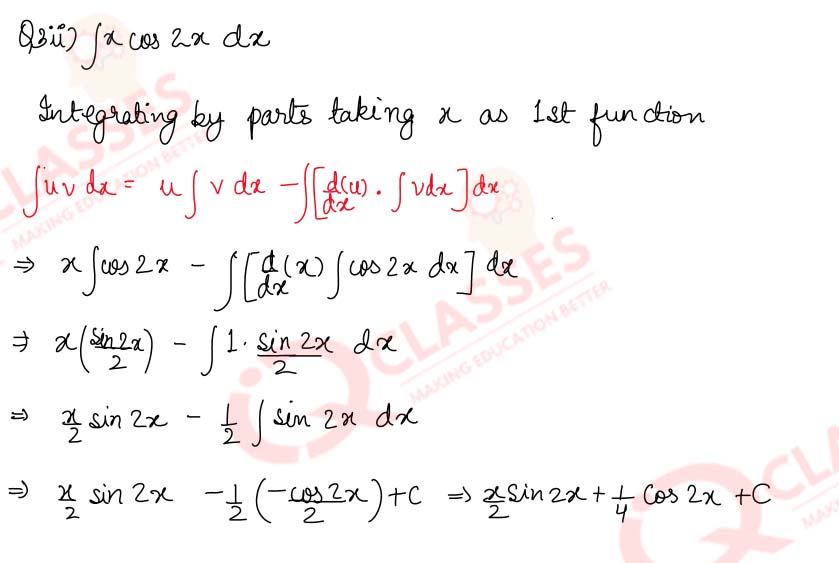 Q3ii) ∫x cos 2x dx
Integrating by parts taking x as 1st function
∫uv dx = u∫v dx − ∫[d(u)/dx · ∫vdx]dx
⇒ x∫cos2x − ∫[d/dx(x)∫cos2x dx] dx
⇒ x(sin2x/2) − ∫1· sin 2x/2 dx
⇒ x/2 sin 2x − 1/2 ∫sin 2x dx
⇒ x/2 sin 2x − 1/2 (−cos2x/2)+C ⇒ x/2 sin 2x + 1/4 cos 2x + C
CLASSES
MAKING EDUCATION BETTER
IQ CLASSES
MAKING EDUCATION BETTER
IQ CLAS
MAKI